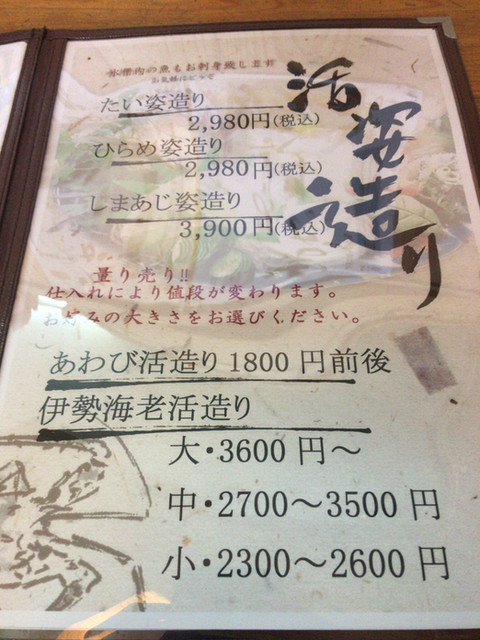 活姿造り
水槽内の魚もお刺身致します
お気軽にどうぞ
たい姿造り
2,980円(税込)
ひらめ姿造り
2,980円(税込)
しまあじ姿造り
3,900円(税込)
量り売り!!
仕入れにより値段が変わります。
お好みの大きさをお選びください。
あわび活造り1800円前後
伊勢海老活造り
大・3600円～
中・2700～3500円
小・2300～2600円